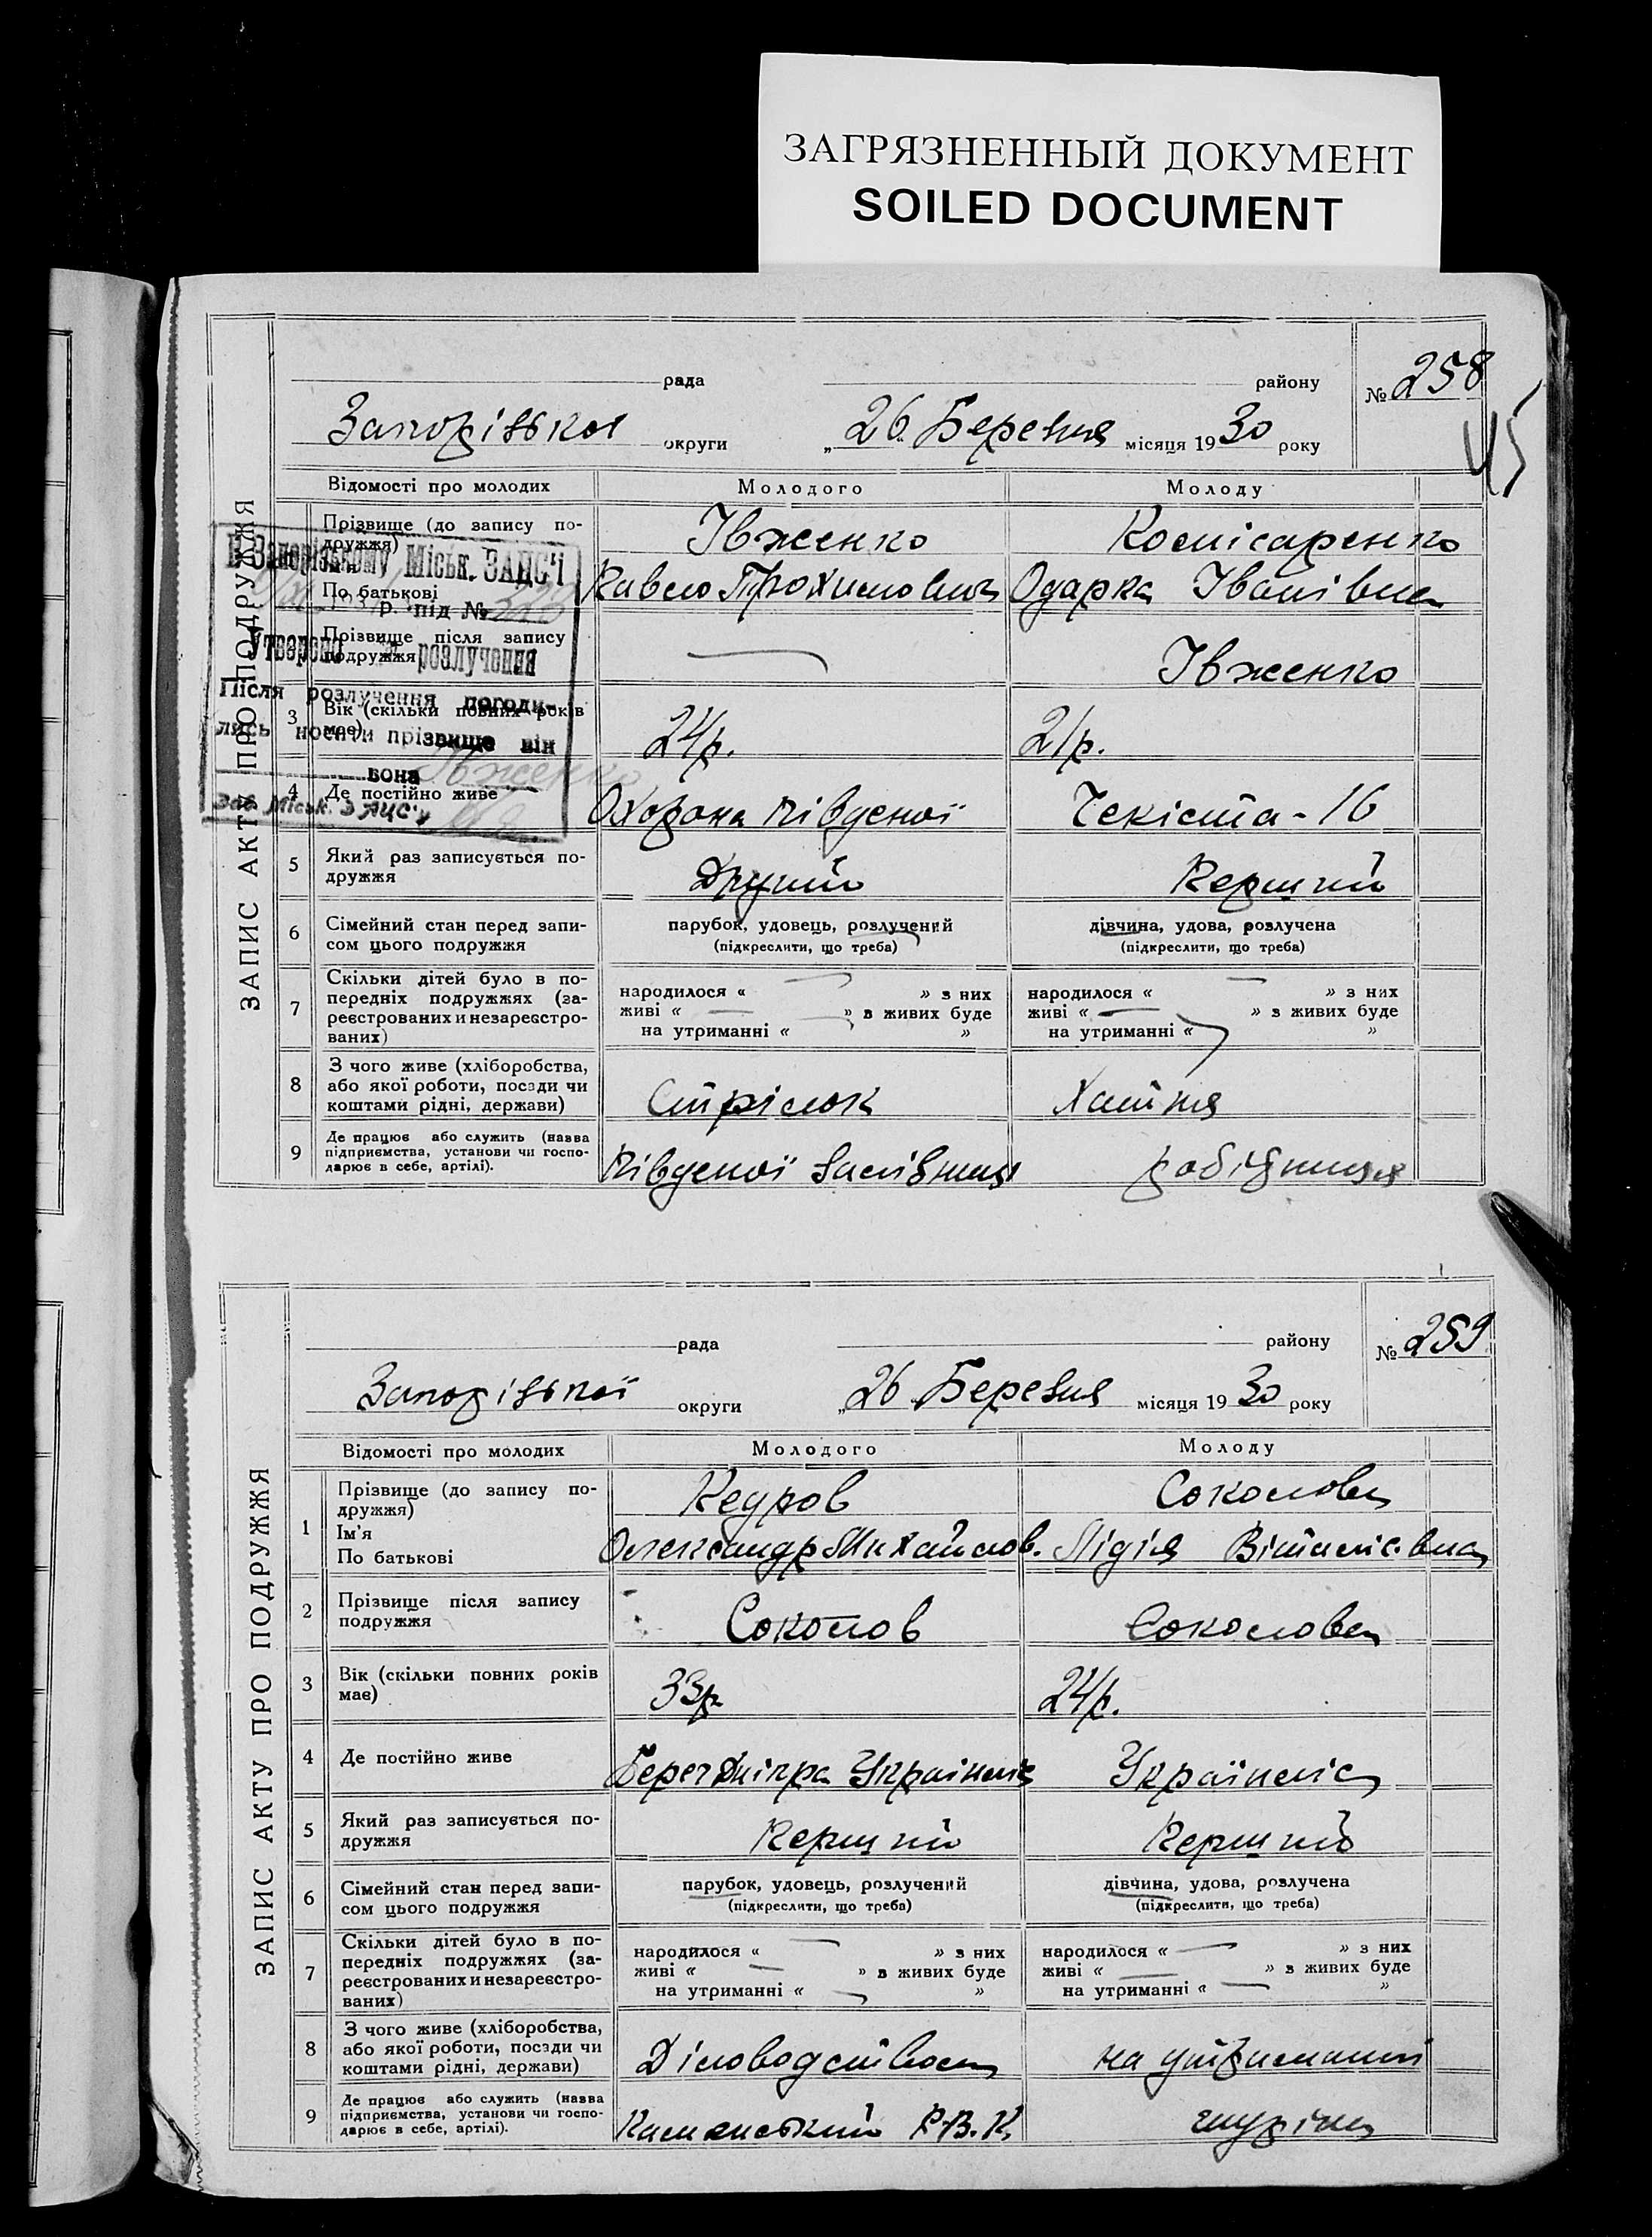 ЗАГРЯЗНЕННЫЙ ДОКУМЕНТ
SOILED DOCUMENT
ЗАПИС АКТУ ПРО ПОДРУЖЖЯ
рада району № 258
45
Запорізької округи „26 Березня місяця 1930 року
Відомості про молодих Молодого Молоду
Прізвище (до запису по-
дружжя) Івженко Комісаренко
Ім'я
По батькові Павло Прохимович Одарка Іванівна
Прізвище після запису
подружжя — Івженко
3 Вік (скільки повних років
має) 24 р. 21 р.
4 Де постійно живе Охорона Південої Чекіста - 16
5 Який раз записується по-
дружжя Другий Перший
6 Сімейний стан перед запи-
сом цього подружжя
парубок, удовець, розлучений
(підкреслити, що треба)
дівчина, удова, розлучена
(підкреслити, що треба)
7 Скільки дітей було в по-
передніх подружжях (за-
реєстрованих и незареєстро-
ваних)
народилося « — » з них
живі « — » з живих буде
на утриманні « »
народилося « — » з них
живі « — » з живих буде
на утриманні « »
8 З чого живе (хліборобства,
або якої роботи, посади чи
коштами рідні, держави) Стрілок Хатня
9 Де працює або служить (назва
підприємства, установи чи госпо-
дарює в себе, артілі). Південої Залізниці робітниця
В Запорізькому Міськ. ЗАГС'і
р. під №
Утверено розлучення
Після розлучення погоди-
лись носити прізвище він
вона Івженко
Зав. Міськ. ЗАГС'у
ЗАПИС АКТУ ПРО ПОДРУЖЖЯ
рада району № 259
Запорізької округи „26 Березня місяця 1930 року
Відомості про молодих Молодого Молоду
1 Прізвище (до запису по-
дружжя) Кедров Соколова
Ім'я
По батькові Олександр Михайлов. Лідія Віталіївна
2 Прізвище після запису
подружжя Соколов Соколова
3 Вік (скільки повних років
має) 33 р. 24 р.
4 Де постійно живе Берег Дніпра Українліс Українліс
5 Який раз записується по-
дружжя Перший Перший
6 Сімейний стан перед запи-
сом цього подружжя
парубок, удовець, розлучений
(підкреслити, що треба)
дівчина, удова, розлучена
(підкреслити, що треба)
7 Скільки дітей було в по-
передніх подружжях (за-
реєстрованих и незареєстро-
ваних)
народилося « — » з них
живі « — » з живих буде
на утриманні « »
народилося « — » з них
живі « — » з живих буде
на утриманні « — »
8 З чого живе (хліборобства,
або якої роботи, посади чи
коштами рідні, держави) Діловодством на утриманні
9 Де працює або служить (назва
підприємства, установи чи госпо-
дарює в себе, артілі). Каменський Р.В.К.